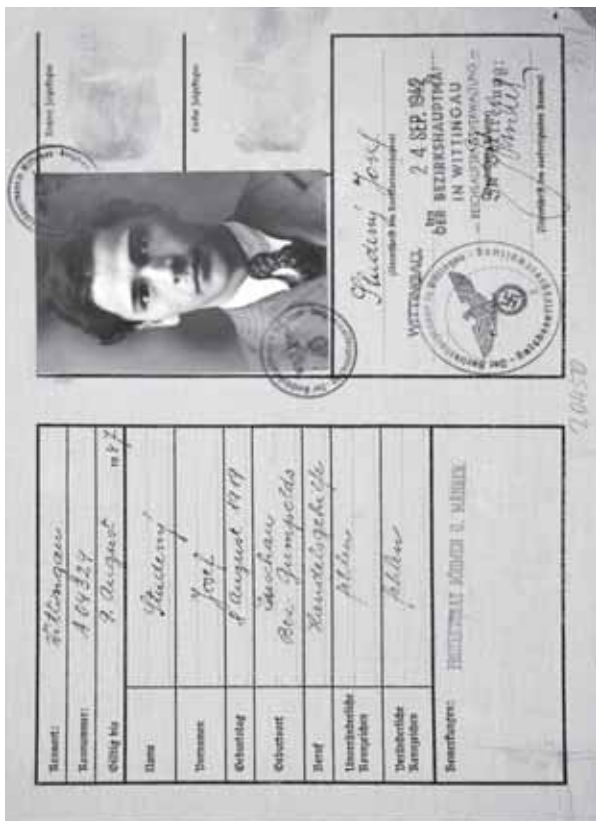 Kennort: Wittingau
Kennummer: A 04329
Gültig bis 9. August 1947
Name Studený
Vornamen Josef
Geburtstag 8 August 1919
Geburtsort
Bez. Gumpolds
Beruf Handelsgehilfe
Unveränderliche Kennzeichen fehlen
Veränderliche Kennzeichen fehlen
Bemerkungen: PROTEKTORAT BÖHMEN U. MÄHREN
Zeigefinger
Linker Zeigefinger
Studený Josef
(Unterschrift des Kennkarteninhabers)
WITTINGAU 24. SEP. 1942
DER BEZIRKSHAUPTMA
IN WITTINGAU
— REICHSAUFTRAGSVERWALTUNG —
In Vertretung:
(Unterschrift des ausfertigenden Beamten)
20450